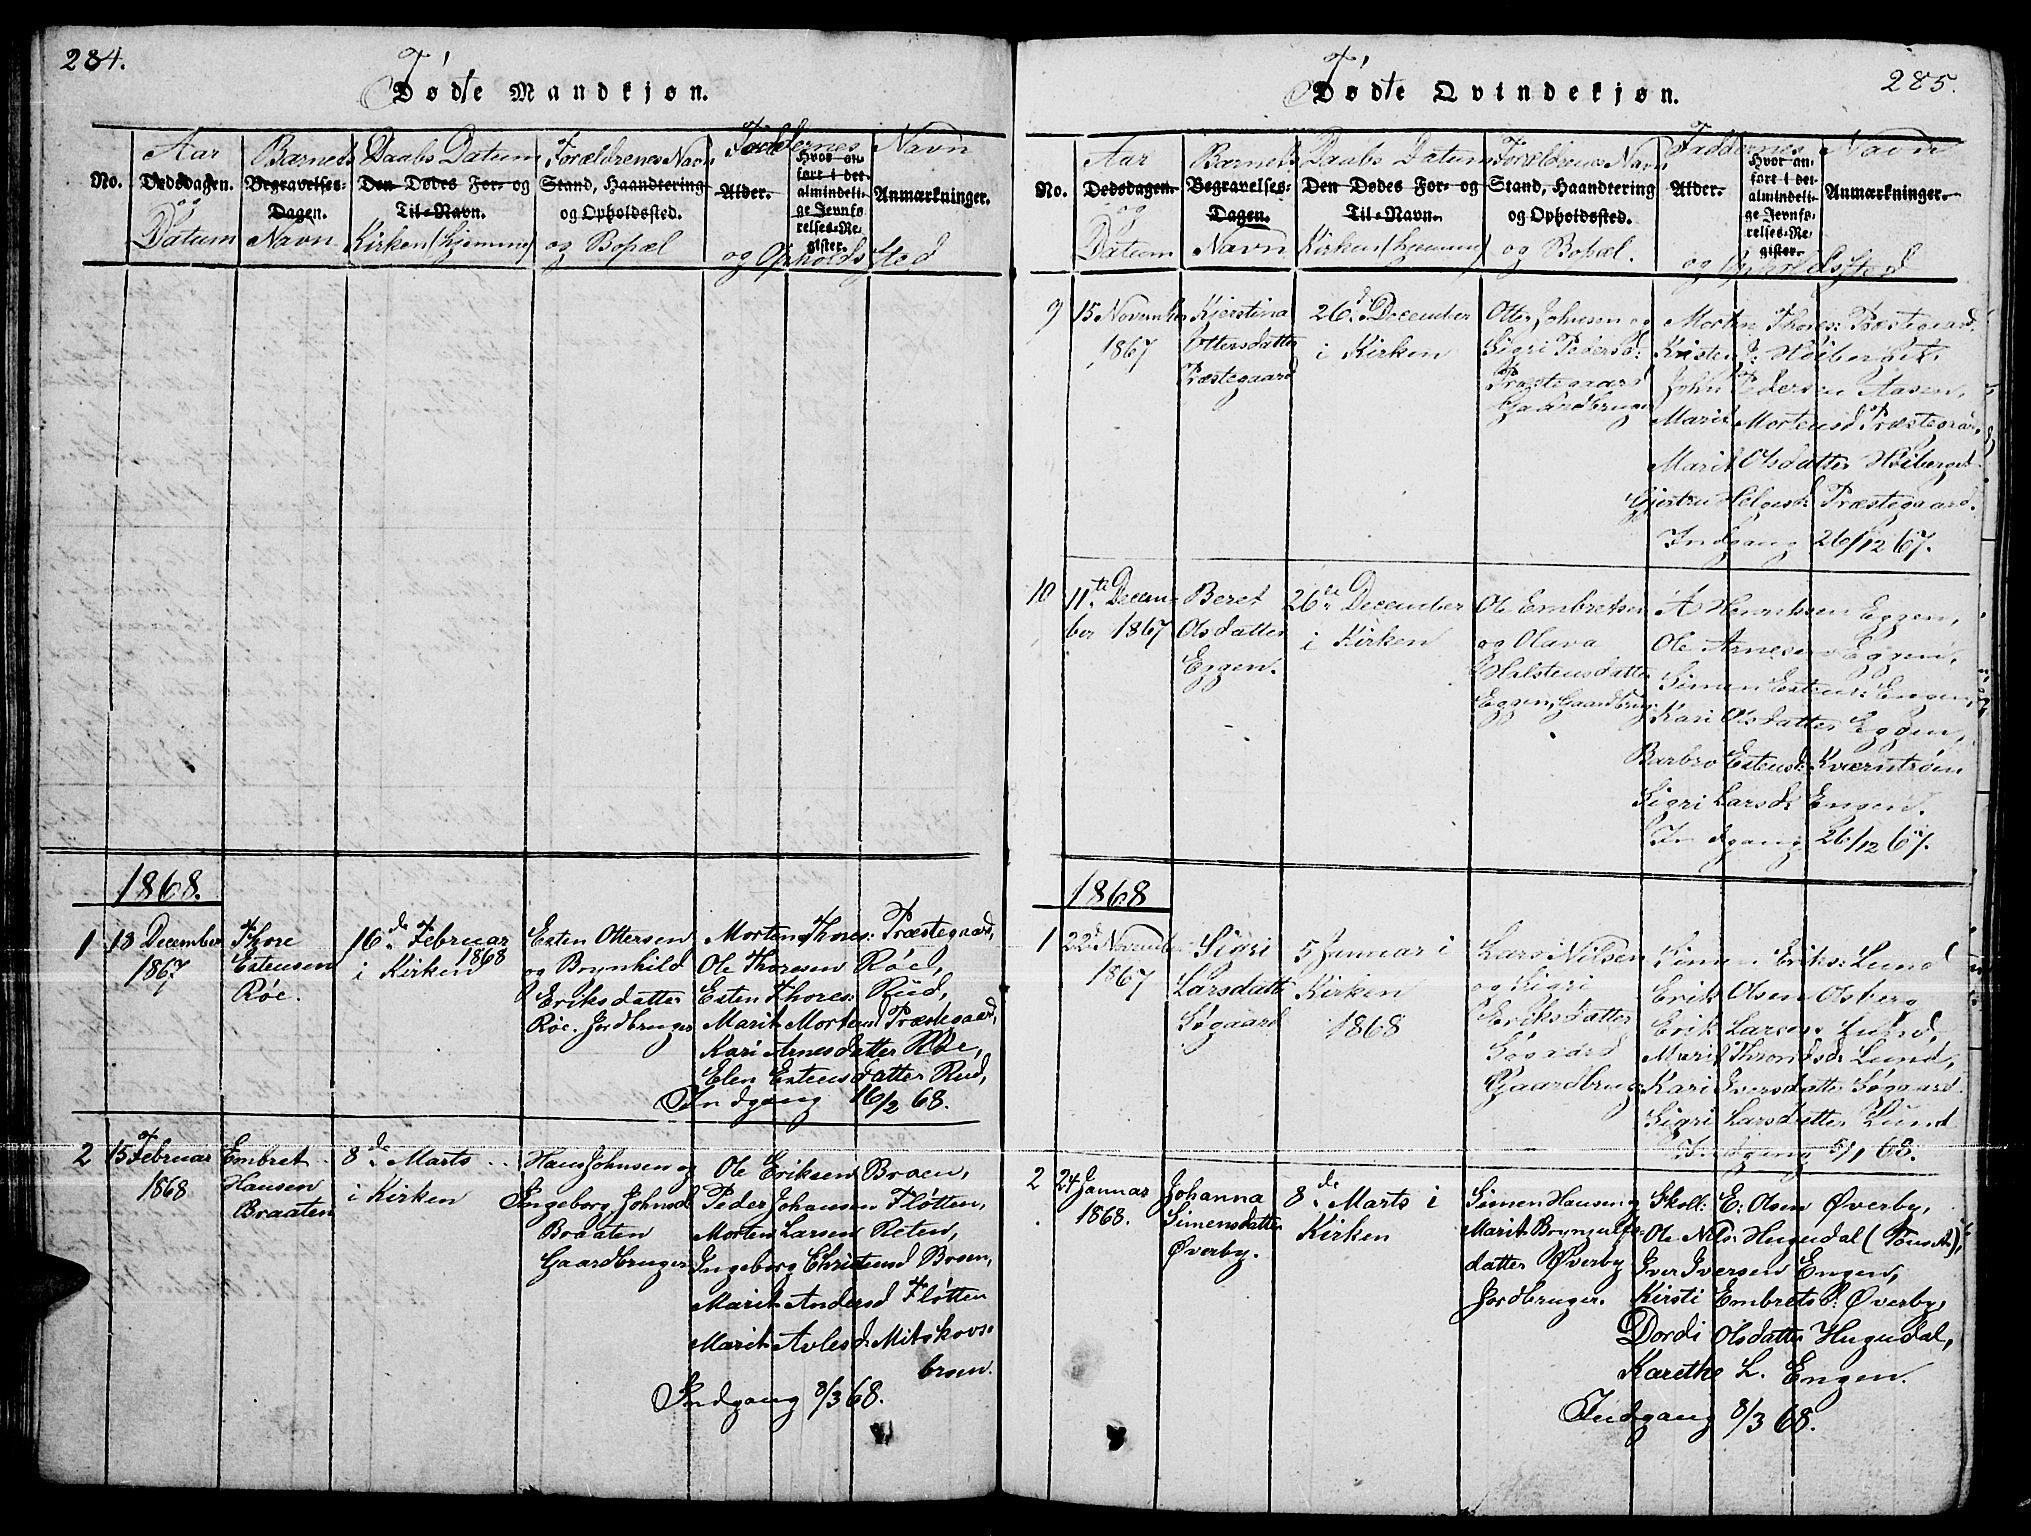 284.
Fødte Mandkjøn.
No.
Aar
Dødsdagen.
og
Datum
Barnets
Begravelses-
Dagen.
Navn
Daabs Datum
Den Dødes For- og
Til-Navn.
Kirken (hjemme)
Forældrenes Navn
Stand, Haandtering
og Opholdssted.
og Bopæl
Faddernes Navn
Alder.
Hvor an-
ført i det
almindeli-
ge Jevnfø-
relses-Re-
gister.
Anmærkninger.
og Opholdssted
1868.
1
18 December
1867
Thore
Estensen
Røe.
16de Februar
1868
i Kirken
Esten Ottersen
og Brynhild
Eriksdatter
Røe. Jordbruger
Morten Thores: Præstegaard,
Ole Thoresen Røe,
Esten Thores: Rud,
Marit Mortensd Præstegaard,
Kari Arnesdatter Røe,
Elen Estensdatter Rud,
Indgang 16/2 68.
2
15 Februar
1868
Embret
Hansen
Braaten
8de Marts
i Kirken
Hans Johnsen og
Ingeborg Johnsd
Braaten
Gaardbruger
Ole Eriksen Broen,
Peder Johansen Fløtten,
Morten Larsen Reten,
Ingeborg Christensd Broen,
Marit Andersd Fløtten
Marit Avlesd: Mitskovs-
broen.
Indgang 8/3 68.
285.
Fødte Qvindekjøn.
No.
Aar
Dødsdagen.
og
Datum
Barnets
Begravelses-
Dagen.
Navn
Daabs Datum
Den Dødes For- og
Til-Navn.
Kirken (hjemme)
Forældrenes Navn
Stand, Haandtering
og Opholdssted.
og Bopæl.
Faddernes Navn
Alder.
Hvor an-
ført i det
almindeli-
ge Jevnfø-
relses-Re-
gister.
Anmærkninger.
og Opholdssted
9
15 November
1867
Kjerstina
Ottersdatter
Præstegaard
26d. December
i Kirken
Otter Johnsen og
Sigri Pedersd:
Præstegaard
Gaardbruger
Morten Thores: Præstegaard,
Kristen J: Høiberget,
John Pedersen Aasen,
Marit Mortensd Præstegaar,
Marit Olsdatter Høiberget
Gjertru Helgesd: Præstegaard.
Indgang 26/12 67.
10
11te Decem-
ber 1867
Beret
Olsdatter
Eggen.
26de December
i Kirken
Ole Embretsen
og Olava
Halstensdatter
Eggen, Gaardbrug:
A Henriksen Eggen,
Ole Arnesen Eggen,
Simen Estens: Engen,
Kari Olsdatter Eggen,
Barbro Estensd: Kværnstrøm
Sigri Larsd: Engen.
Indgang 26/12 67.
1868
1
22d Novemb.
1867
Sigri
Larsdatt
Søgaard
5 Januar i
Kirken
1868
Lars Nilsen
og Sigri
Eriksdatter
Søgaard
Gaardbrug
Simen Eriks: Lund
Erik Olsen Olsberg
Erik Larsen Lund,
Marit Throndsd: Lund,
Kari Iversdatter Søgaard
Sigri Larsdatter Lund
Indgang 5/1 68.
2
24 Januar
1868.
Johanna
Simensdatter
Øverby.
8de Marts i
Kirken
Simen Hansen og
Marit Brynyulfs-
datter Øverby
Jordbruger.
Skoll: E: Olsen Øverby,
Ole Nils: Hugudal (Tønset),
Iver Iversen Engen,
Kirsti Embretsd: Øverby,
Dordi Olsdatter Hugudal,
Karethe L. Engen.
Indgang 8/3 68.